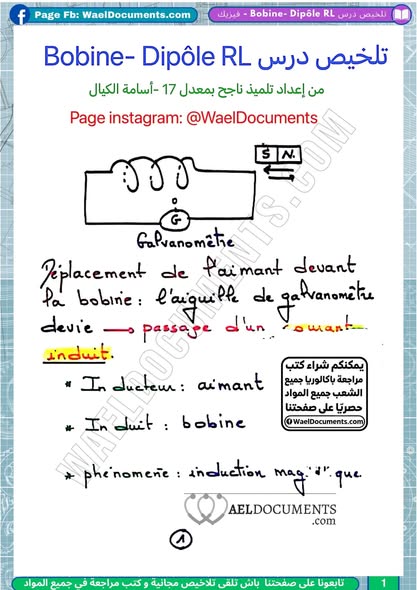 Page Fb: WaelDocuments.com
تلخيص درس Bobine- Dipôle RL - فيزيك
تلخيص درس Bobine- Dipôle RL
من إعداد تلميذ ناجح بمعدل 17 -أسامة الكيال
Page instagram: @WaelDocuments
S N
G
Galvanomètre
Déplacement de l'aimant devant
la bobine : l'aiguille de galvanomètre
devie → passage d'un courant
induit.
* Inducteur : aimant
* Induit : bobine
* phénomène : induction mag que
يمكنكم شراء كتب
مراجعة باكالوريا جميع
الشعب جميع المواد
حصريًا على صفحتنا
WaelDocuments.com
WAELDOCUMENTS
.com
WAELDOCUMENTS.COM
1
تابعونا على صفحتنا باش تلقى تلاخيص مجانية و كتب مراجعة في جميع المواد
1